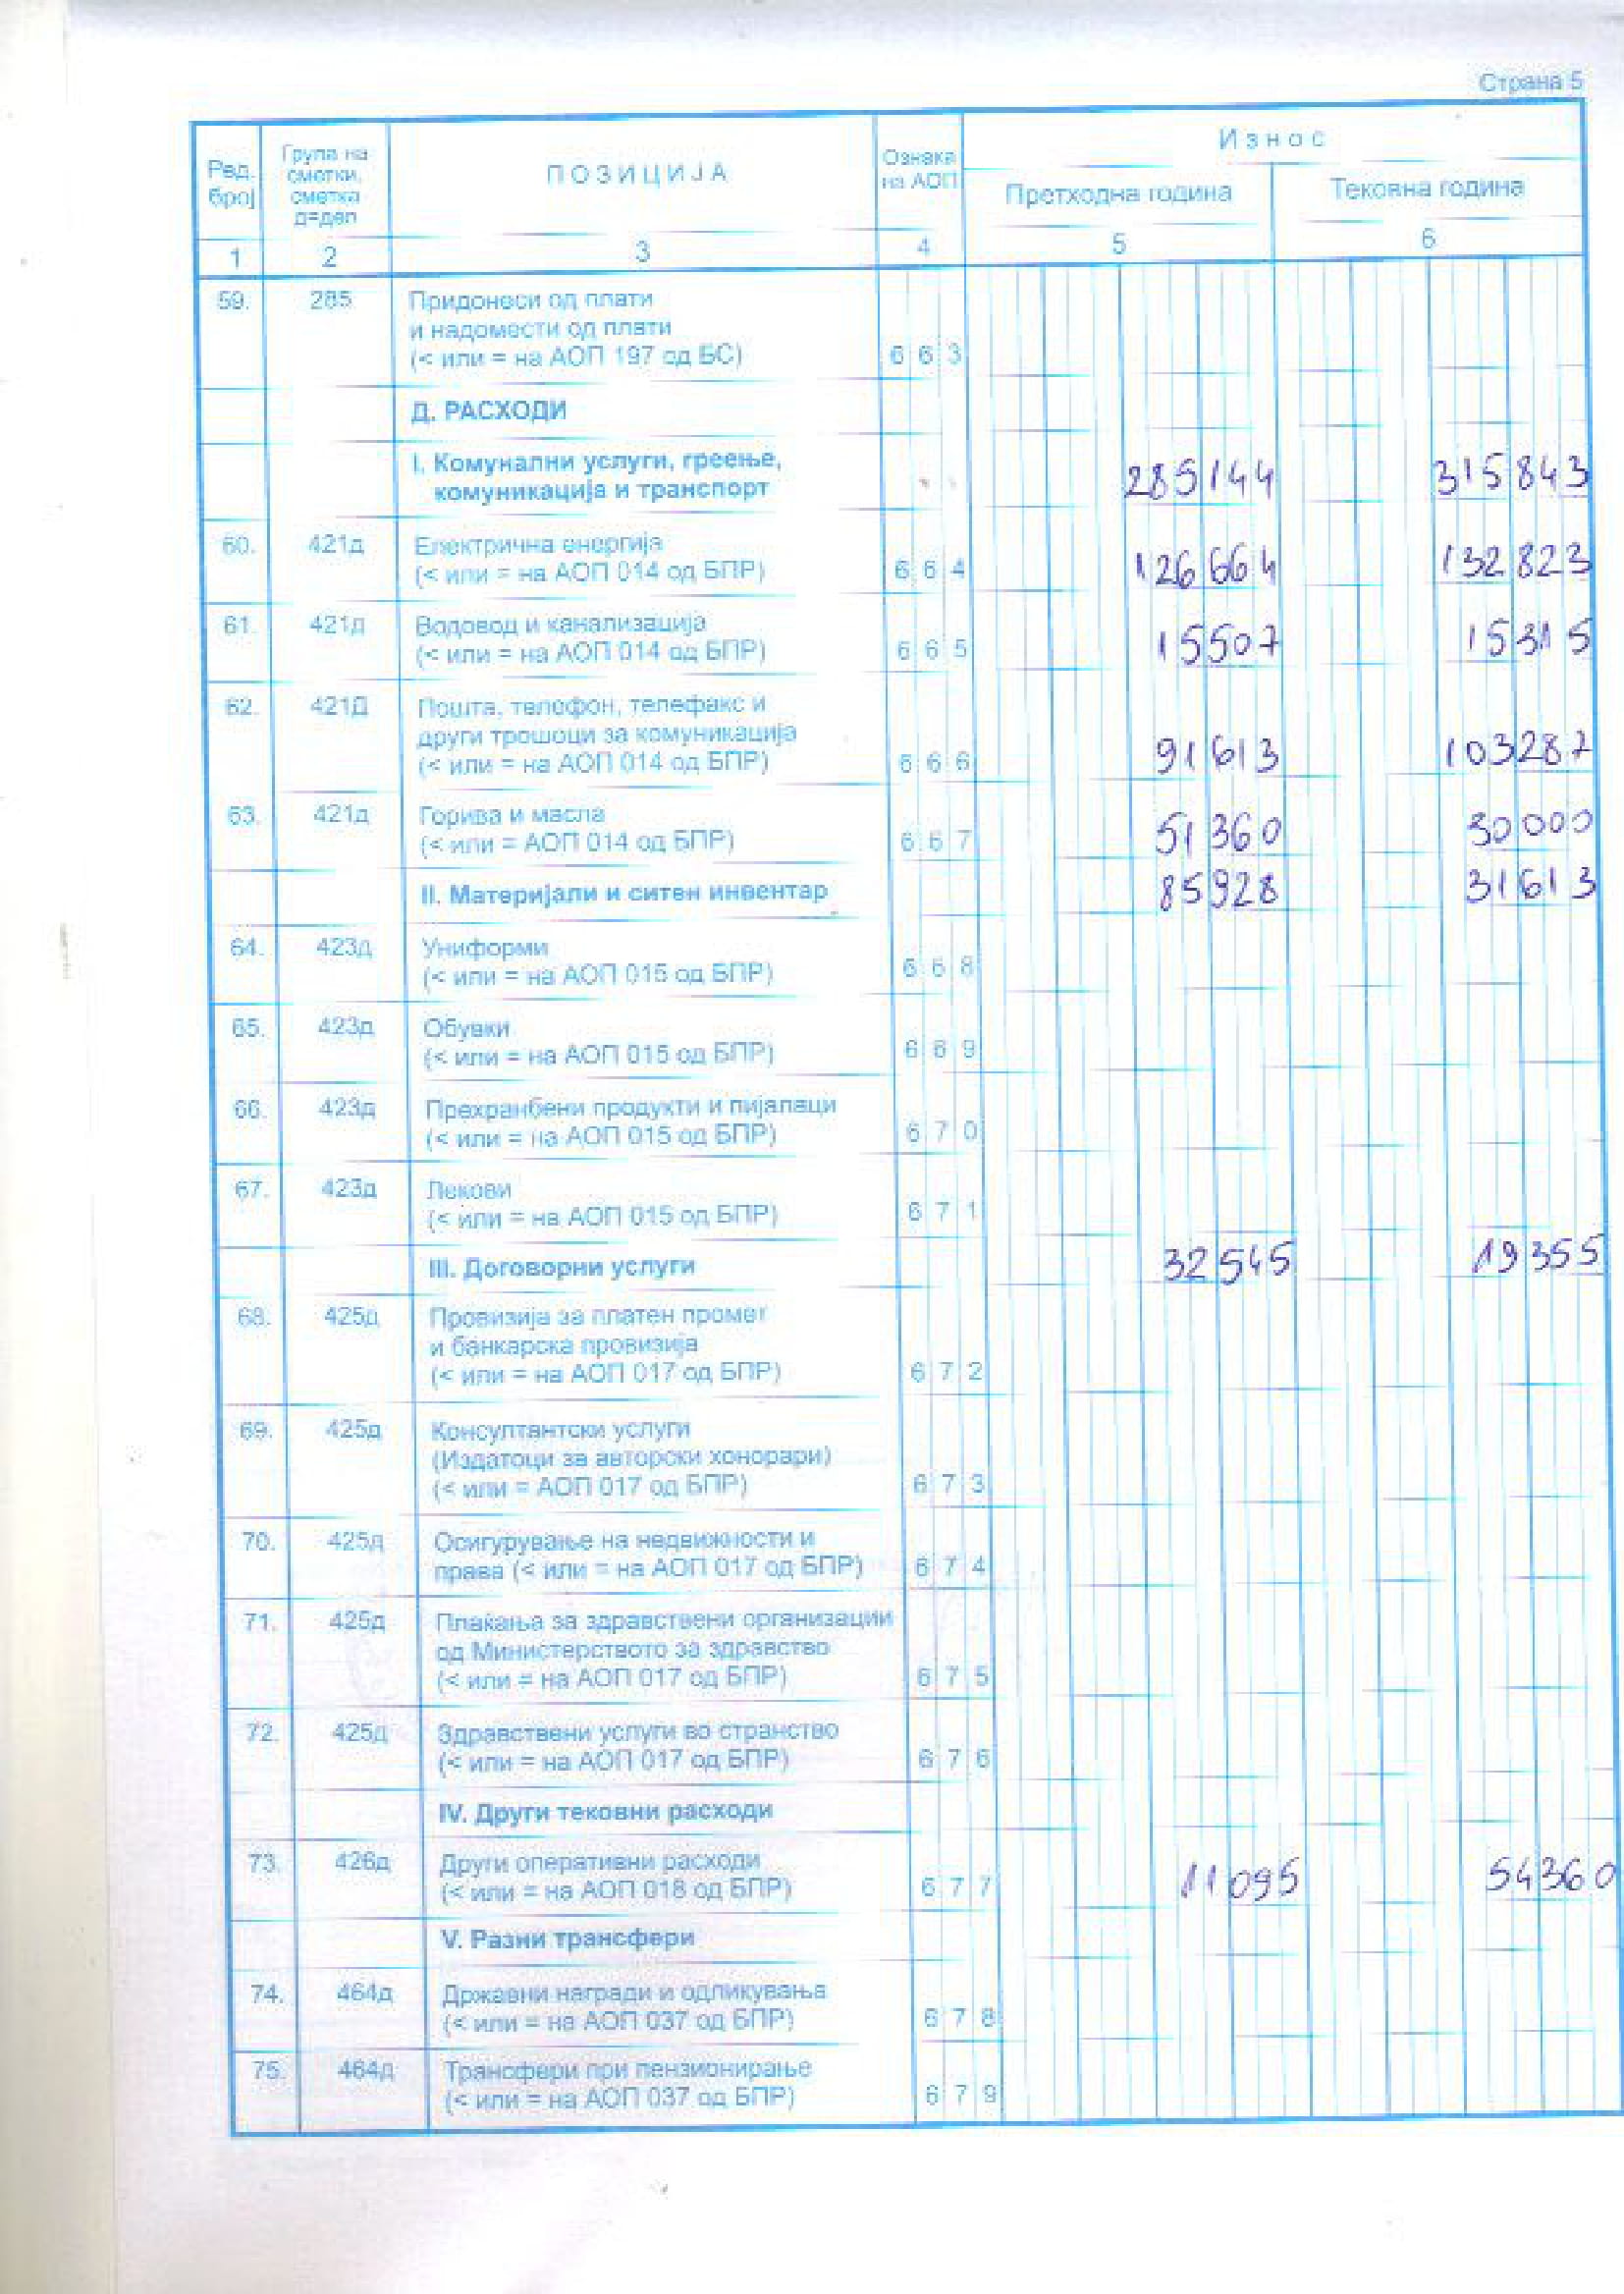 Страна 5
Ред. број
Група на сметки, сметка д=дел
ПОЗИЦИЈА
Ознака на АОП
Износ
Претходна година
Тековна година
1 2 3 4 5 6
59. 285 Придонеси од плати
и надомести од плати
(< или = на АОП 197 од БС) 663
Д. РАСХОДИ
I. Комунални услуги, греење,
комуникација и транспорт 285144 315843
60. 421д Електрична енергија
(< или = на АОП 014 од БПР) 664 126664 132823
61. 421д Водовод и канализација
(< или = на АОП 014 од БПР) 665 15507 15315
62. 421д Пошта, телефон, телефакс и
други трошоци за комуникација
(< или = на АОП 014 од БПР) 666 91613 103287
63. 421д Горива и масла
(< или = АОП 014 од БПР) 667 51360 30000
II. Материјали и ситен инвентар 85928 31613
64. 423д Униформи
(< или = на АОП 015 од БПР) 668
65. 423д Обувки
(< или = на АОП 015 од БПР) 669
66. 423д Прехранбени продукти и пијалаци
(< или = на АОП 015 од БПР) 670
67. 423д Лекови
(< или = на АОП 015 од БПР) 671
III. Договорни услуги 32545 19355
68. 425д Провизија за платен промет
и банкарска провизија
(< или = на АОП 017 од БПР) 672
69. 425д Консултантски услуги
(Издатоци за авторски хонорари)
(< или = АОП 017 од БПР) 673
70. 425д Осигурување на недвижности и
права (< или = на АОП 017 од БПР) 674
71. 425д Плаќања за здравствени организации
од Министерството за здравство
(< или = на АОП 017 од БПР) 675
72. 425д Здравствени услуги во странство
(< или = на АОП 017 од БПР) 676
IV. Други тековни расходи
73. 426д Други оперативни расходи
(< или = на АОП 018 од БПР) 677 11095 54360
V. Разни трансфери
74. 464д Државни награди и одликувања
(< или = на АОП 037 од БПР) 678
75. 464д Трансфери при пензионирање
(< или = на АОП 037 од БПР) 679